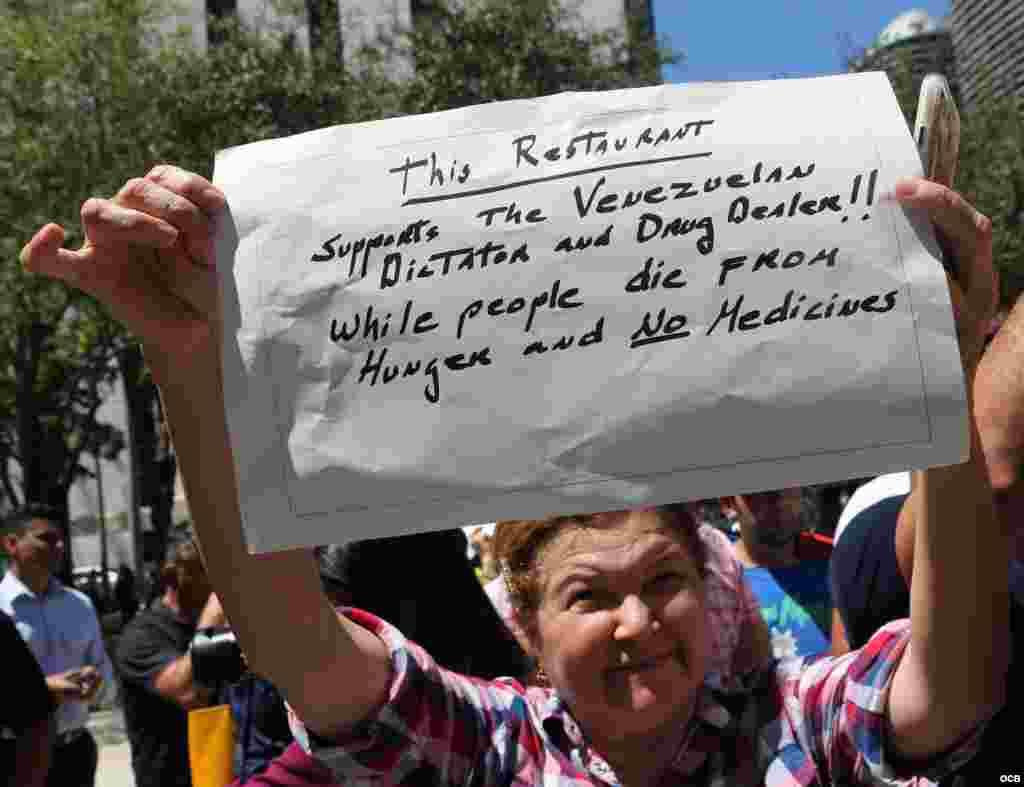 This Restaurant
Supports The Venezuelan
Dictator and Drug Dealer!!
While people die From
Hunger and No Medicines
OCB